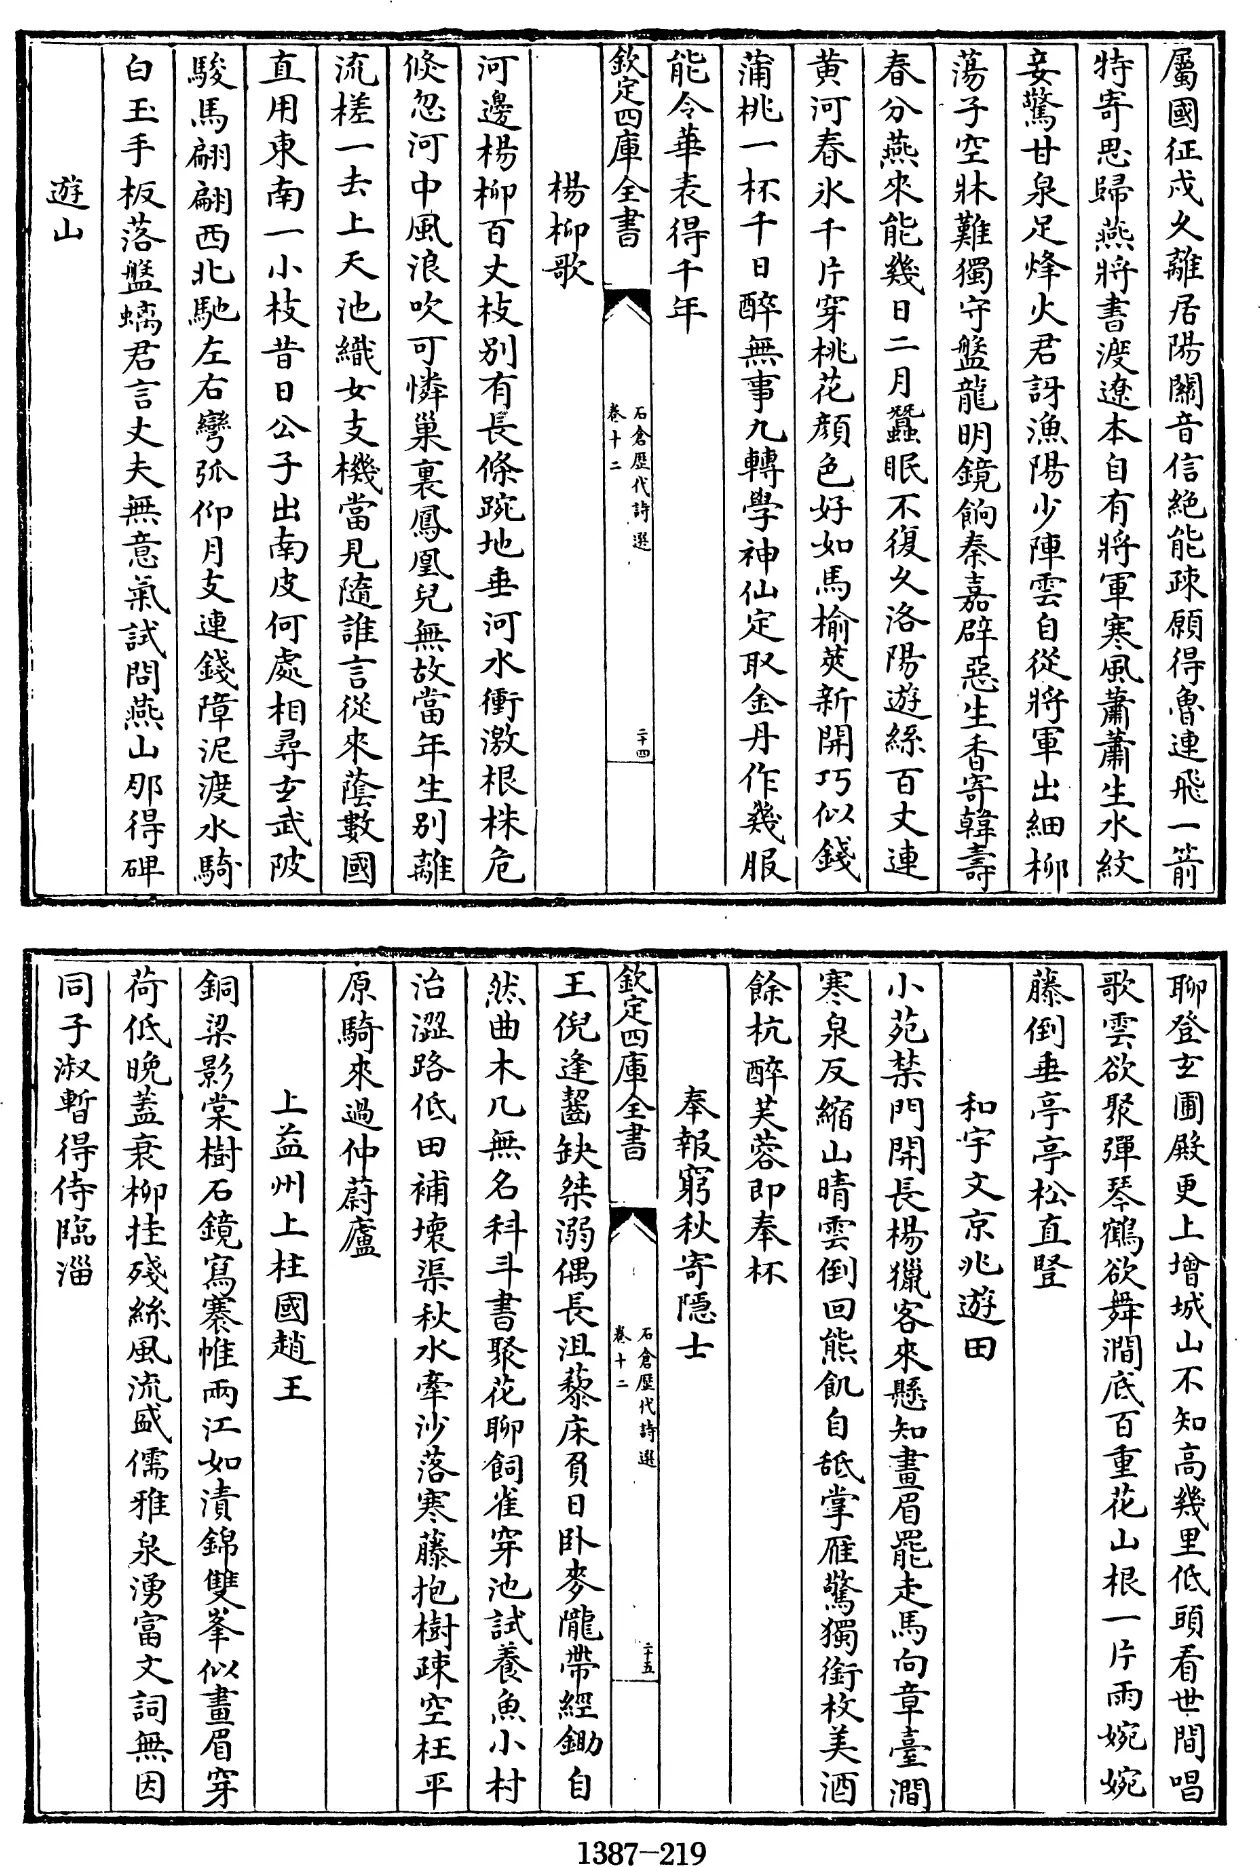 屬國征戍久離居陽關音信絶能疎願得魯連飛一箭
特寄思歸燕將書渡遼本自有將軍寒風蕭蕭生水紋
妾驚甘泉足烽火君訝漁陽少陣雲自從將軍出細柳
蕩子空牀難獨守盤龍明鏡餉秦嘉辟惡生香寄韓壽
春分燕來能幾日二月蠶眠不復久洛陽遊絲百丈連
黄河春氷千片穿桃花顔色好如馬榆莢新開巧似錢
蒲桃一杯千日醉無事九轉學神仙定取金丹作幾服
能令華表得千年
欽定四庫全書
石倉歷代詩選
卷十二
二十四
楊柳歌
河邊楊柳百丈枝别有長條踠地垂河水衝激根株危
倏忽河中風浪吹可憐巢裏鳳凰兒無故當年生别離
流槎一去上天池織女支機當見隨誰言從來蔭數國
直用東南一小枝昔日公子出南皮何處相尋玄武陂
駿馬翩翩西北馳左右彎弧仰月支連錢障泥渡水騎
白玉手板落盤螭君言丈夫無意氣試問燕山那得碑
遊山
聊登玄圃殿更上增城山不知高幾里低頭看世間唱
歌雲欲聚彈琴鶴欲舞澗底百重花山根一片雨婉婉
藤倒垂亭亭松直豎
和宇文京兆遊田
小苑禁門開長楊獵客來懸知畫眉罷走馬向章臺澗
寒泉反縮山晴雲倒回熊飢自舐掌雁驚獨銜枚美酒
餘杭醉芙蓉即奉杯
奉報窮秋寄隱士
欽定四庫全書
石倉歷代詩選
卷十二
二十五
王倪逢齧缺桀溺偶長沮藜床負日卧麥隴帶經鋤自
然曲木几無名科斗書聚花聊飼雀穿池試養魚小村
治澀路低田補壞渠秋水牽沙落寒藤抱樹疎空枉平
原騎來過仲蔚廬
上益州上柱國趙王
銅梁影棠樹石鏡寫褰帷兩江如漬錦雙峯似畫眉穿
荷低晚蓋衰柳挂殘絲風流盛儒雅泉湧富文詞無因
同子淑暫得侍臨淄
1387-219